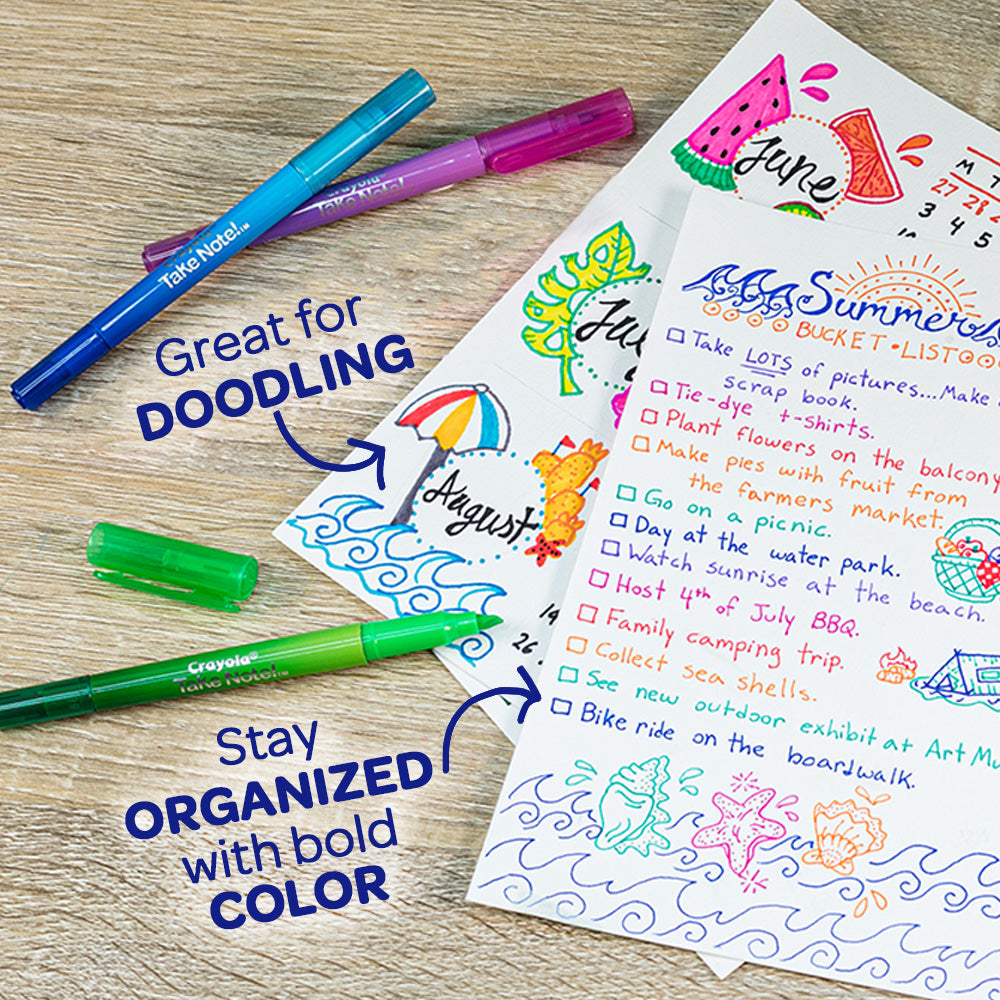 Crayola
Take Note!
Take Note!™
Great for
DOODLING
June
M T
27 28 2
3 4 5
10
July
August
19
26
Summer
BUCKET • LIST
Take LOTS of pictures...Make
scrap book.
Tie-dye t-shirts.
Plant flowers on the balcony
Make pies with fruit from
the farmers market.
Go on a picnic.
Day at the water park.
Watch sunrise at the beach.
Host 4th of July BBQ.
Family camping trip.
Collect sea shells.
See new outdoor exhibit at Art Mu
Bike ride on the boardwalk.
Crayola®
Take Note!™
Stay
ORGANIZED
with bold
COLOR